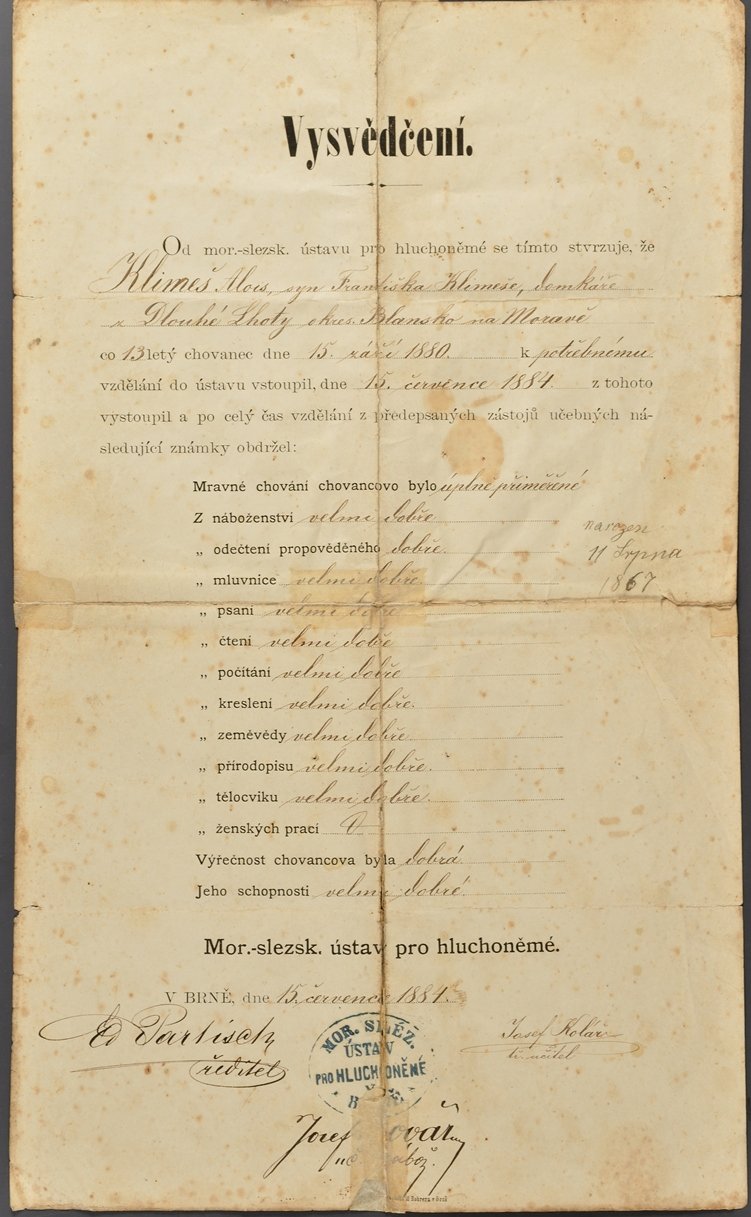 Vysvědčení.
Od mor.-slezsk. ústavu pro hluchoněmé se tímto stvrzuje, že
Klimeš Alois, syn Františka Klimeše, domkáře
z Dlouhé Lhoty okres. Blansko na Moravě
co 13letý chovanec dne 15. září 1880. k potřebnému
vzdělání do ústavu vstoupil, dne 15. července 1884. z tohoto
vystoupil a po celý čas vzdělání z předepsaných zástojů učebných ná-
sledující známky obdržel:
Mravné chování chovancovo bylo úplně přiměřené
Z náboženství velmi dobře
„ odečtení propověděného dobře.
„ mluvnice velmi dobře.
„ psaní velmi dobře
„ čtení velmi dobře
„ počítání velmi dobře
„ kreslení velmi dobře.
„ zeměvědy velmi dobře.
„ přírodopisu velmi dobře.
„ tělocviku velmi dobře.
„ ženských prací
Výřečnost chovancova byla dobrá
Jeho schopnosti velmi dobré.
narozen
11 Srpna
1867
Mor.-slezsk. ústav pro hluchoněmé.
V BRNĚ, dne 15. července 1884.
Ed Partisch
ředitel
Josef Kolář
tř. učitel
MOR. SLEZ.
ÚSTAV
PRO HLUCHONĚMÉ
Josef